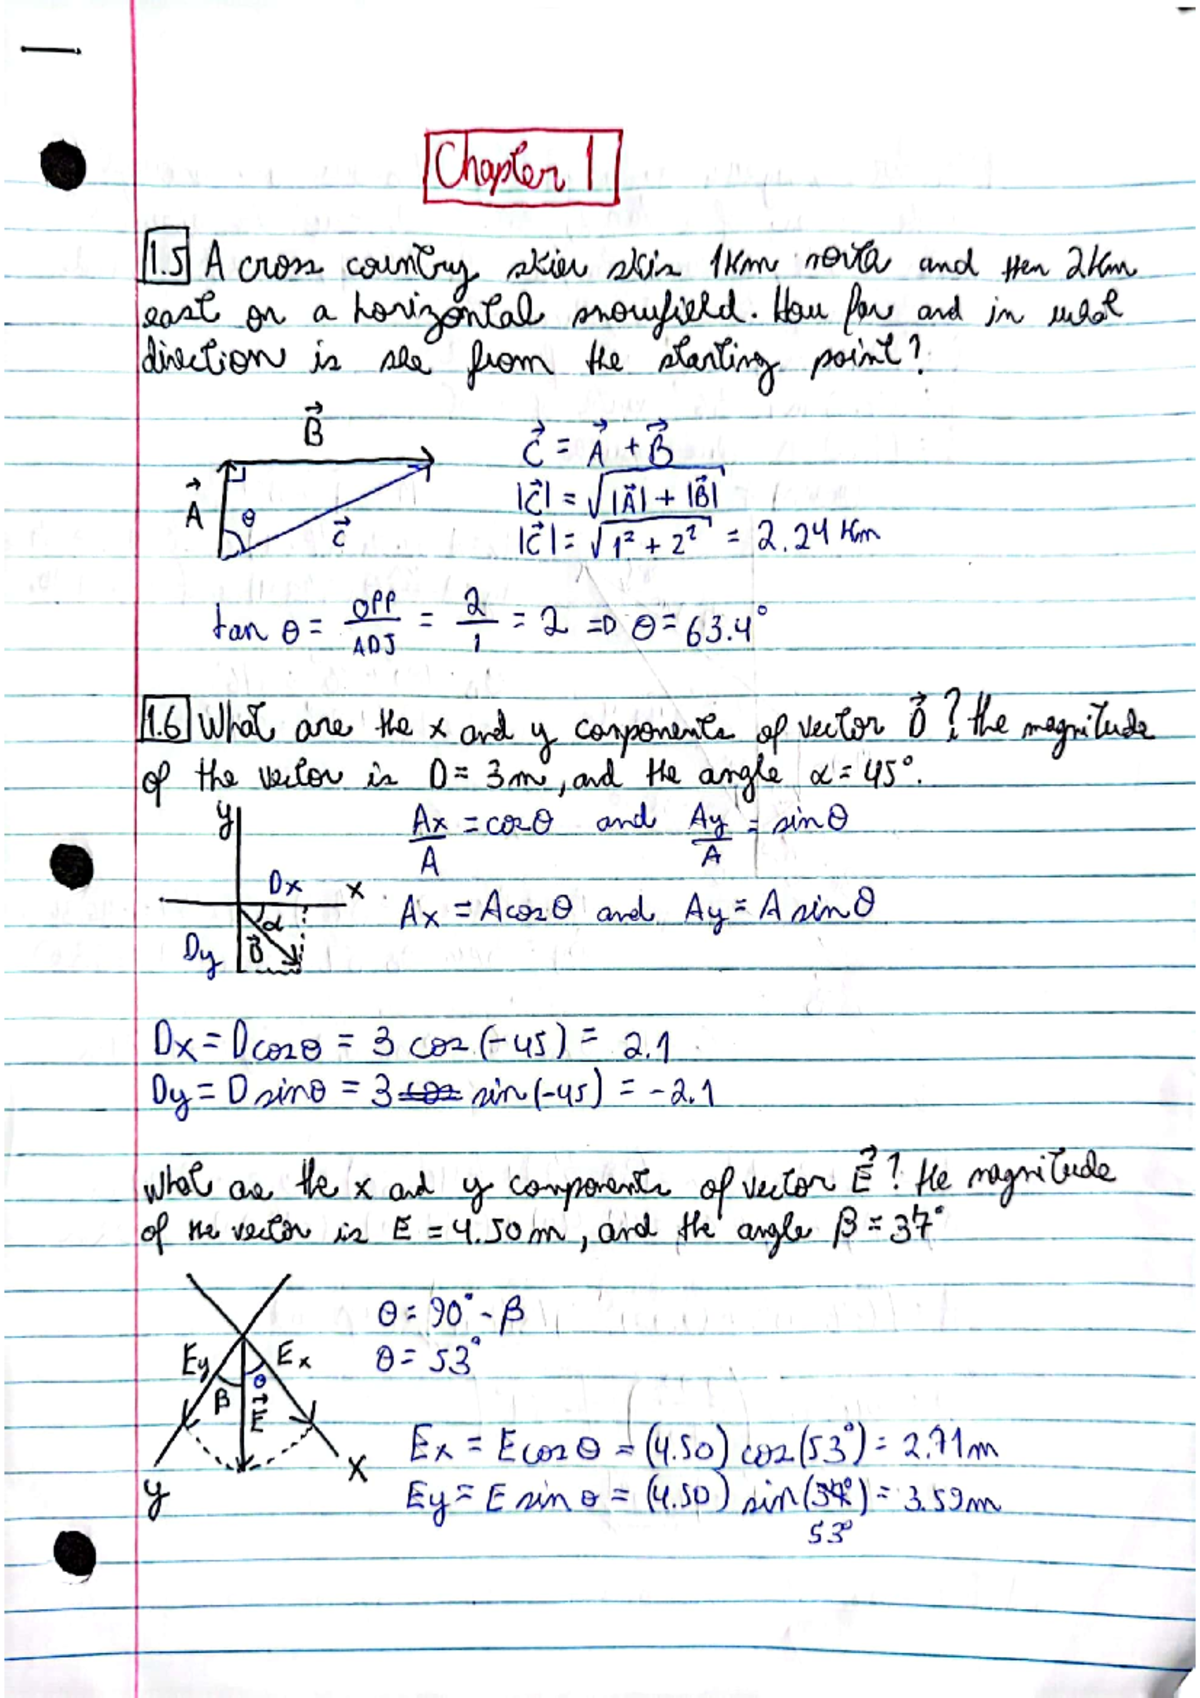 Chapter 1
1.5 A cross country skier skis 1Km north and then 2Km
east on a horizontal snowfield. How far and in what
direction is she from the starting point?
B⃗
A⃗
θ
C⃗
C⃗ = A⃗ + B⃗
|C⃗| = √|A⃗| + |B⃗|
|C⃗| = √1² + 2² = 2.24 Km
tan θ = OPP/ADJ = 2/1 = 2 => θ = 63.4°
1.6 What are the x and y components of vector D⃗? the magnitude
of the vector is D = 3m, and the angle α = 45°.
y
Dx x
α
Dy D⃗
Ax/A = cosθ and Ay/A = sinθ
Ax = Acosθ and Ay = A sinθ
Dx = Dcosθ = 3 cos (-45) = 2.1
Dy = D sinθ = 3 cos sin (-45) = -2.1
What are the x and y components of vector E⃗? the magnitude
of the vector is E = 4.50m, and the angle β = 37°
θ = 90° - β
θ = 53°
Ey Ex
β θ
E⃗
x
y
Ex = E cos θ = (4.50) cos (53°) = 2.71m
Ey = E sin θ = (4.50) sin (37°) = 3.59m
53°